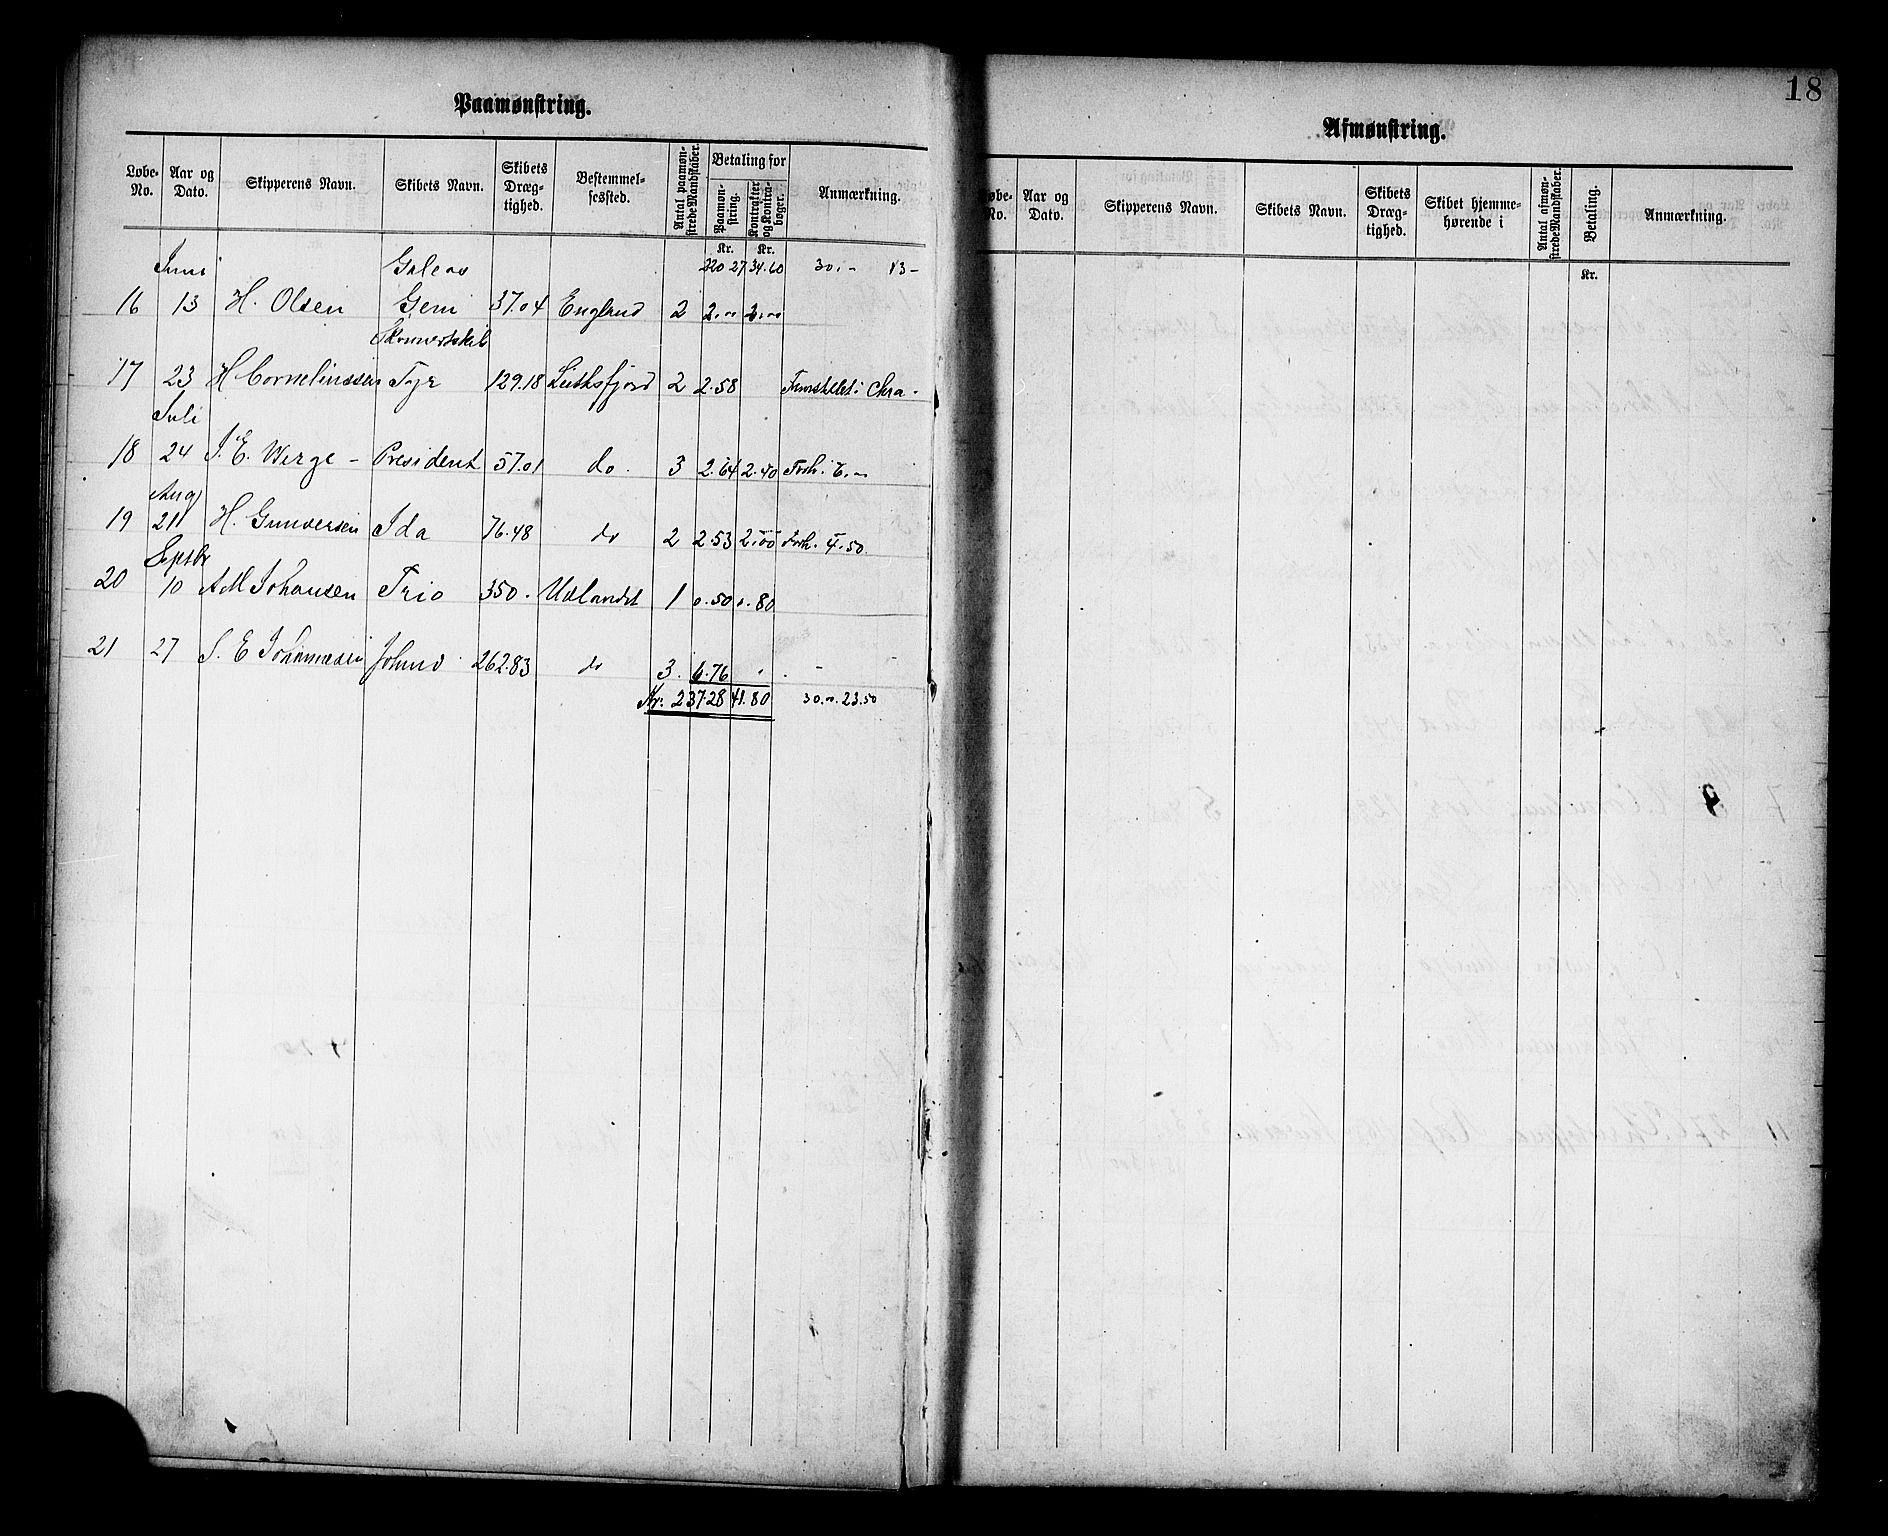 Paamønstring.
Løbe-No. Aar og Dato. Skipperens Navn. Skibets Navn. Skibets Dræg-tighed. Bestemmel-sessted. Antal paamøn-strede Mandskaber. Betaling for Paamøn-string. Kontrakter og Kontra-bøger. Anmærkning.
Kr. Kr.
Juni Galeas 220 27 34.60 30.- 13-
16 13 H. Olsen Gem 37.04 England 2 2.-
17 23 H Corneliussen Tyr 129.18 2 2.58
Juli
18 24 J. E. Werge - President 57.01 do. 3 2.64 2.40 Forh. 6.-
Aug
19 21 H. Gunversen Ida 76.48 do 2 2.53 2.00 Forh. 4.50
Septbr
20 10 A M Johansen Trio 350. Udlandet 1 0.50 0.80
21 27 S. E Johannesen 262.83 do 3. 6.76 - -
Kr. 237.28 41.80 30.- 23.50
18
Afmønstring.
Løbe-No. Aar og Dato. Skipperens Navn. Skibets Navn. Skibets Dræg-tighed. Skibet hjemme-hørende i Antal afmøn-strede Mandskaber. Betaling. Anmærkning.
Kr.